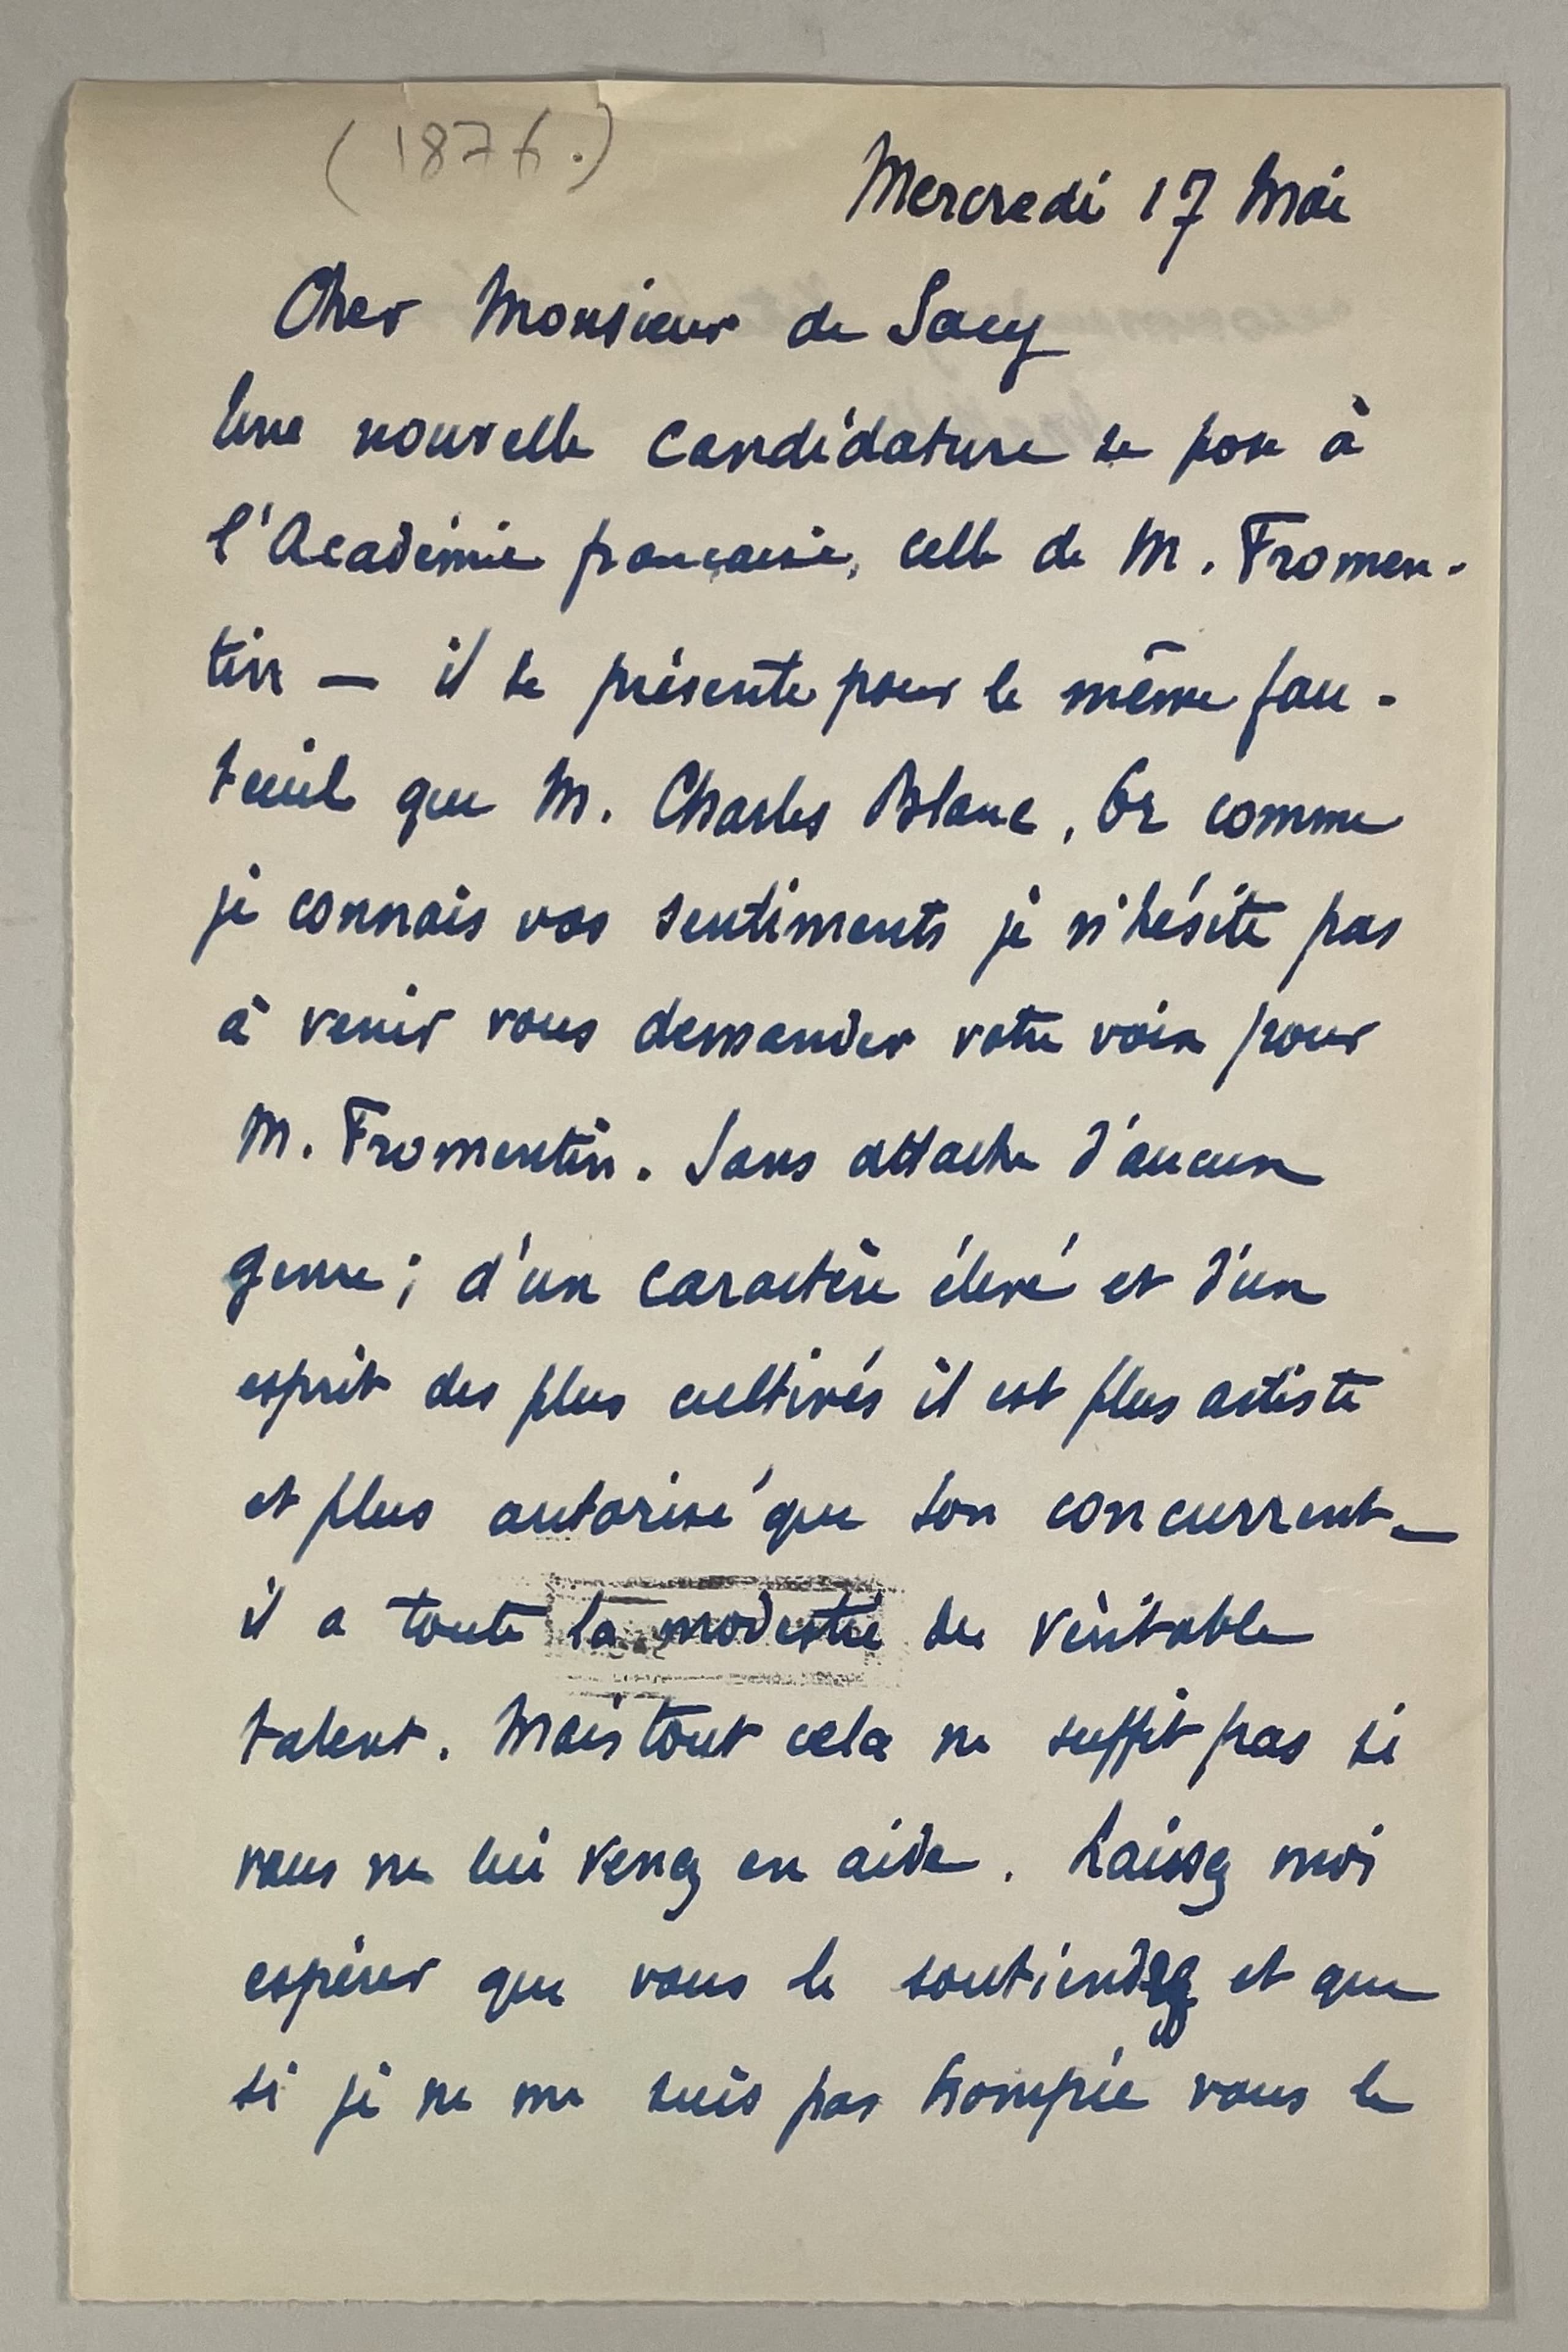 (1876.)
Mercredi 17 Mai
Cher Monsieur de Sacy
Une nouvelle candidature se pose à
l'Académie française, celle de M. Fromen-
tin — il se présente pour le même fau-
teuil que M. Charles Blanc, Or comme
je connais vos sentiments je n'hésite pas
à venir vous demander votre voix pour
M. Fromentin. Sans attache d'aucun
genre ; d'un caractère élevé et d'un
esprit des plus cultivés il est plus artiste
et plus autorisé que son concurrent —
il a toute la modestie du véritable
talent. Mais tout cela ne suffit pas si
vous ne lui venez en aide. Laissez moi
espérer que vous le soutiendrez et que
si je ne me suis pas trompée vous le